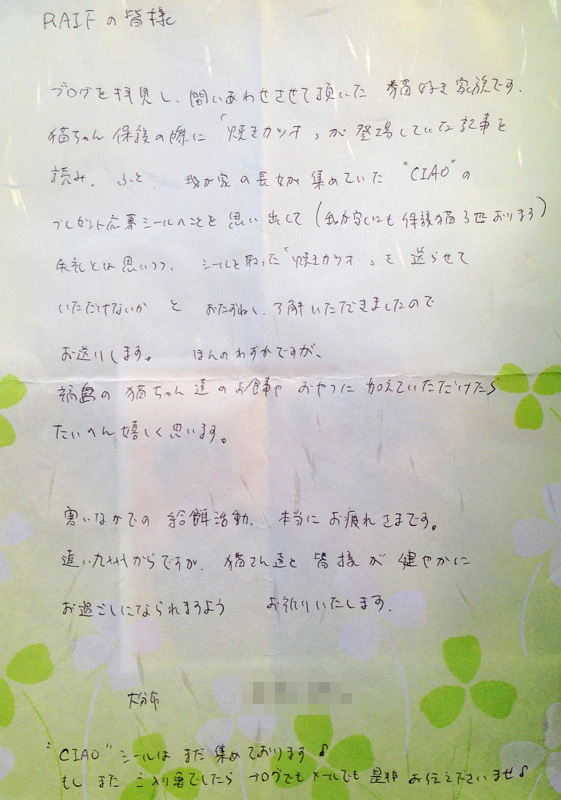 RAIFの皆様
ブログを拝見し、問いあわせさせて頂いた 猫好き家族です。
猫ちゃん保護の際に「焼きカツオ」が登場していた記事を
読み、ふと、我が家の長女が集めていた "CIAO"の
プレゼント応募シールのことを思い出して(我が家にも保護猫3匹おります)
失礼とは思いつつ、シールを取った「焼きカツオ」を送らせて
いただけないか と おたずねし、了解いただきましたので
お送りします。 ほんのわずかですが、
福島の猫ちゃん達のお食事や おやつに加えていただけたら
たいへん嬉しく思います。
寒いなかでの給餌活動、本当にお疲れさまです。
遠い九州からですが、猫さん達と皆様が健やかに
お過ごしになられますよう お祈りいたします。
大分市
"CIAO"シールはまだ集めております♪
もし また ご入用でしたら ブログでもメールでも是非お伝え下さいませ♪